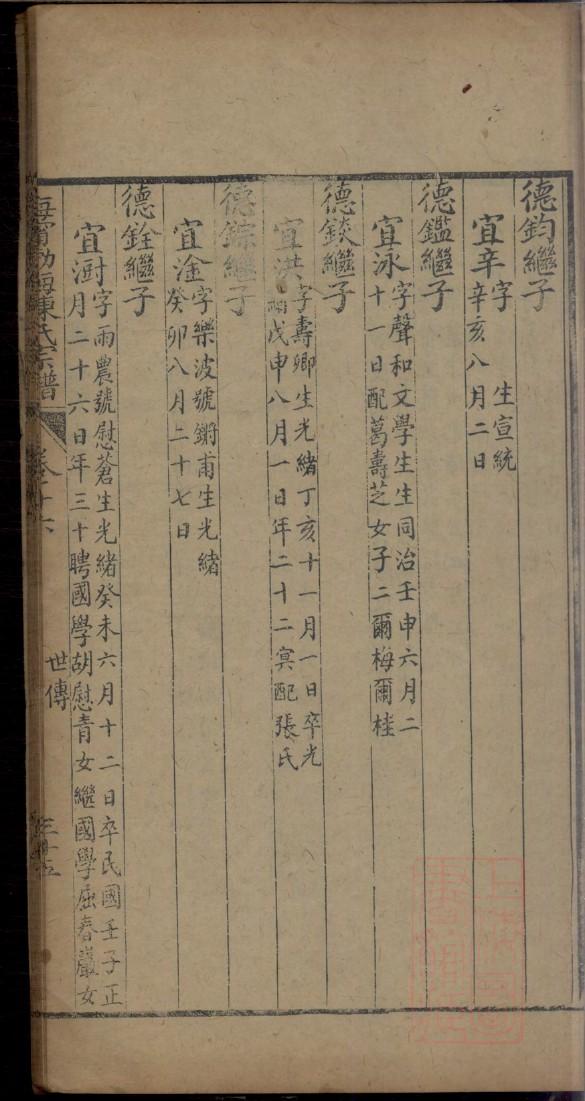 德鈞繼子
宜辛字　生宣統
辛亥八月二日
德鑑繼子
宜泳字聲和文學生生同治壬申六月二
十一日配葛壽芝女子二爾梅爾桂
德錟繼子
宜洪字壽卿生光緒丁亥十一月一日卒光
緒戊申八月一日年二十二冥配張氏
德錝繼子
宜淦字樂波號鏘甫生光緒
癸卯八月二十七日
德銓繼子
宜澍字雨農號慰蒼生光緒癸未六月十二日卒民國壬子正
月二十六日年三十聘國學胡慰青女繼國學屈春巖女
海甯渤海陳氏宗譜
世傳